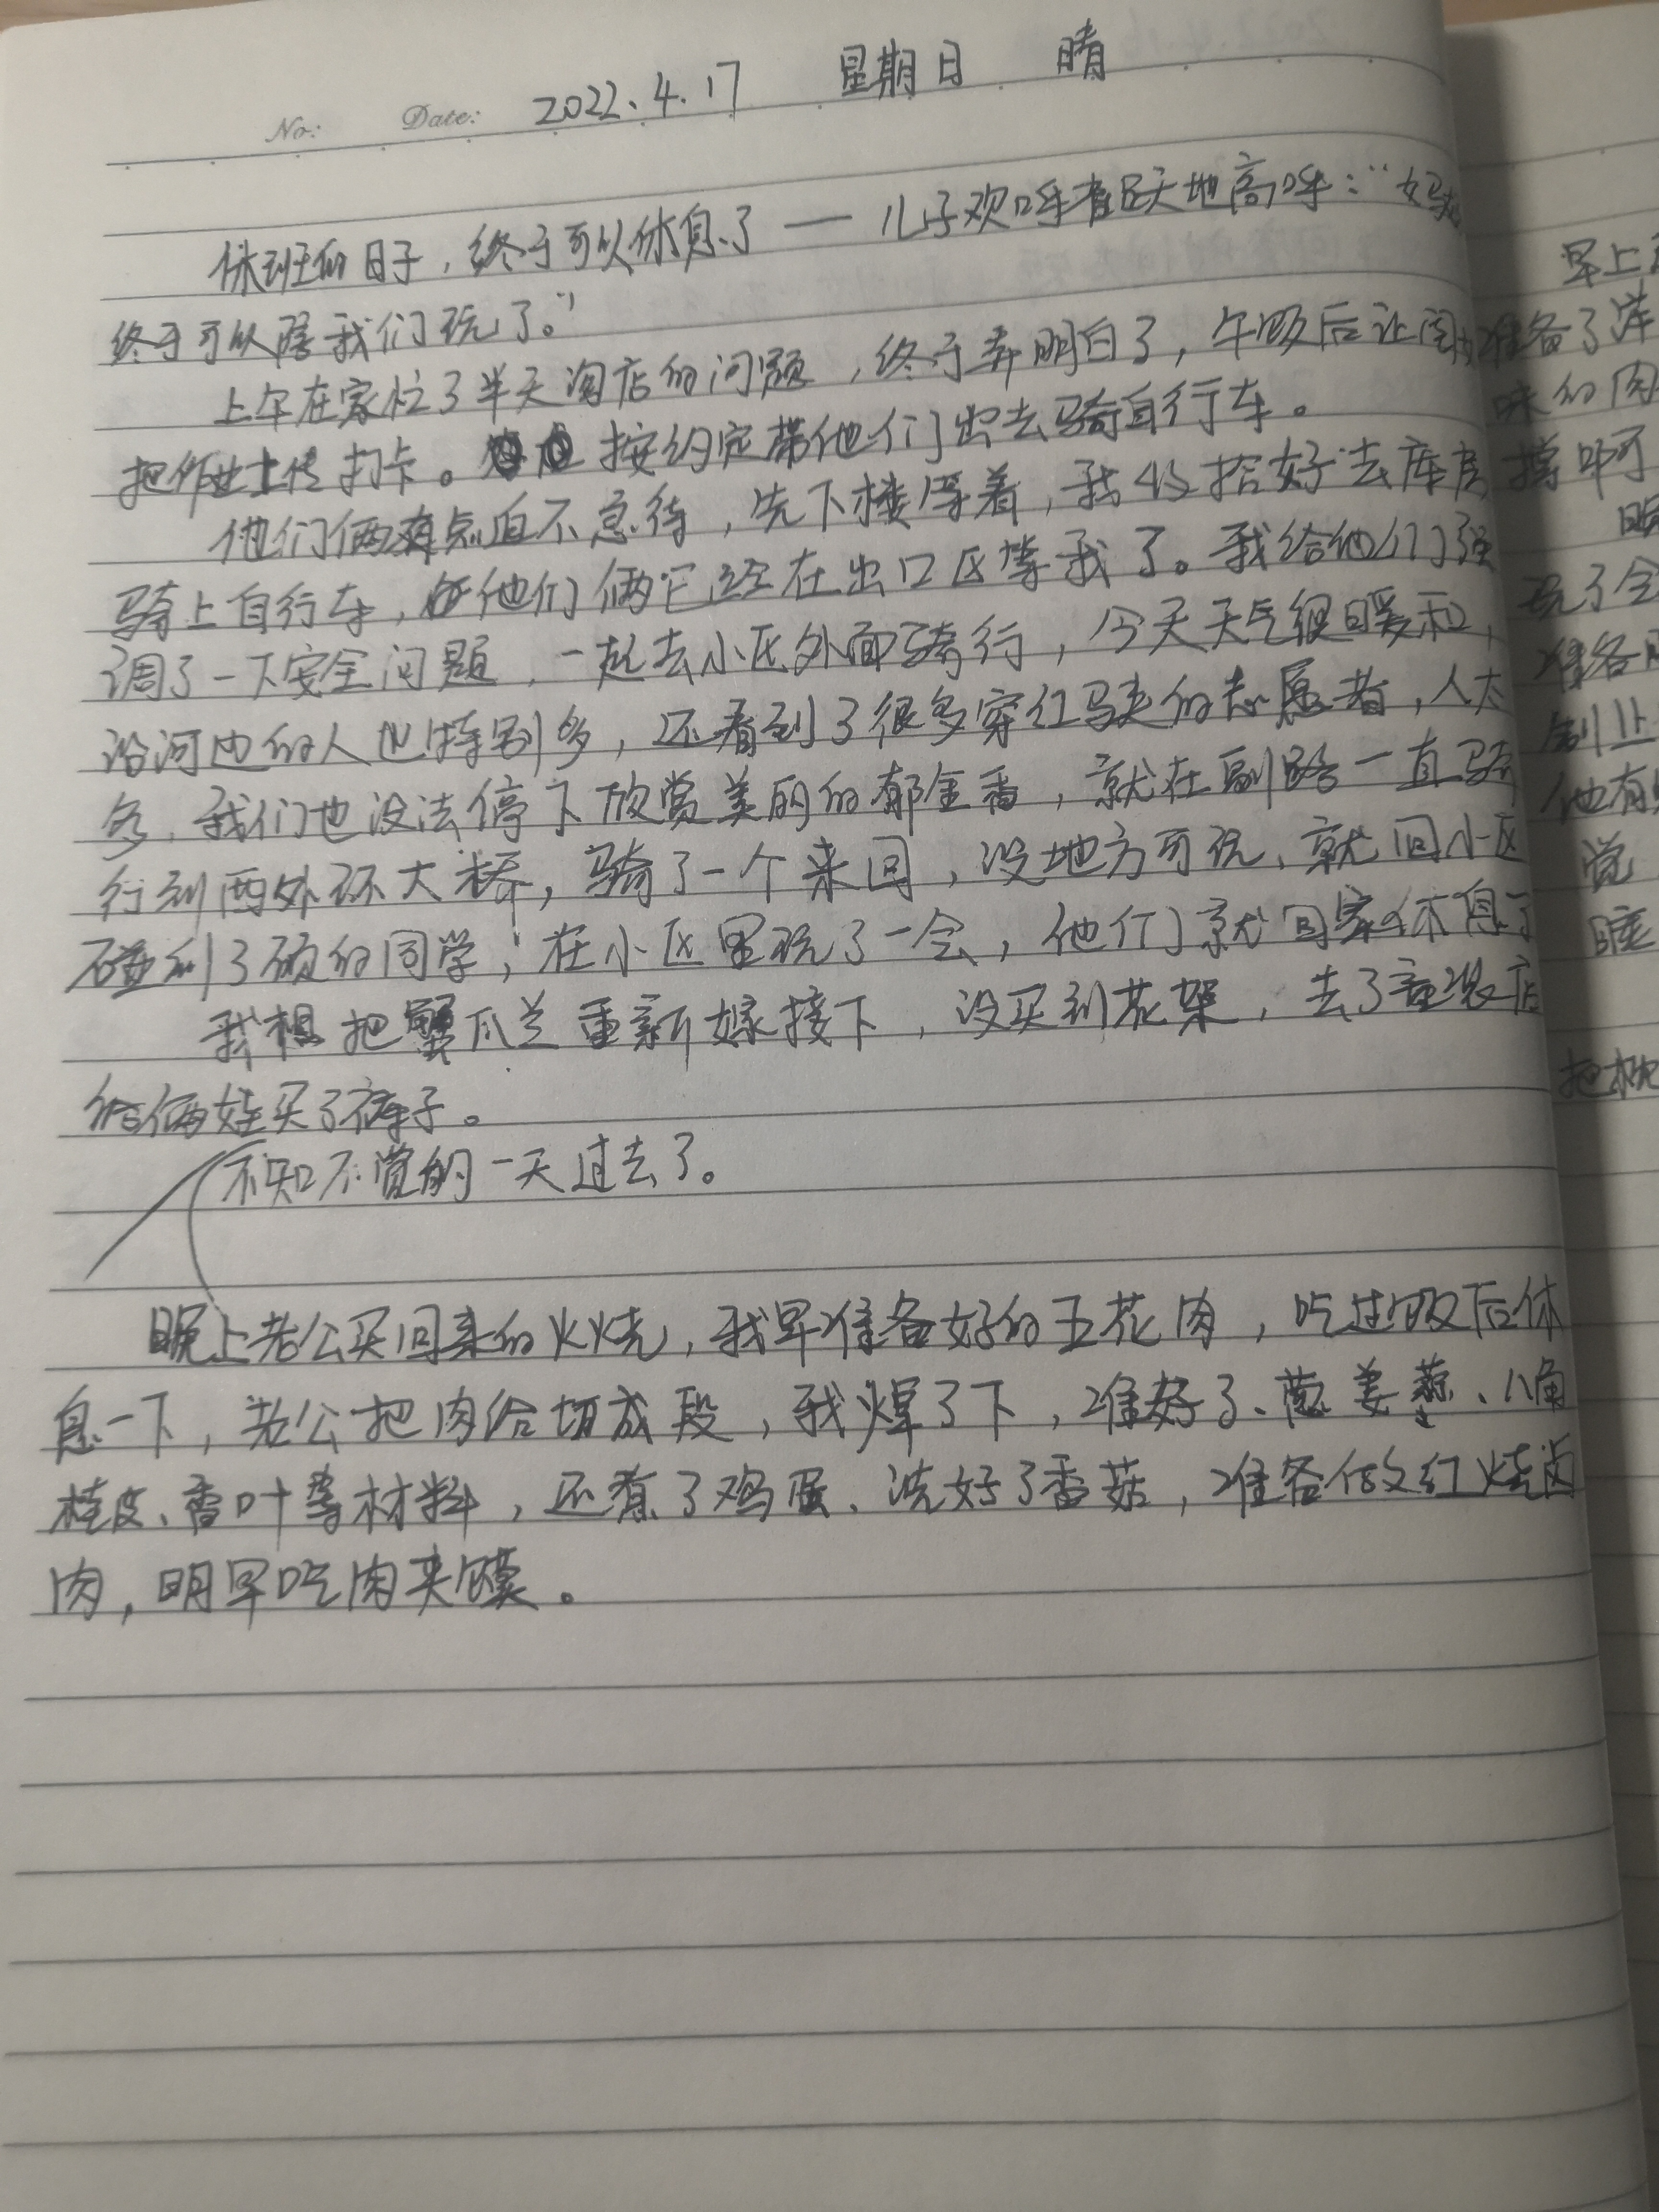 No: Date: 2022.4.17 星期日 晴
休班的日子，终于可以休息了——儿子欢呼雀跃地高呼：“妈妈
终于可以陪我们玩了。”
上午在家忙了半天淘店的问题，终于弄明白了，午饭后让闺女
把作业上传打卡。按约定带他们出去骑自行车。
他们俩有点迫不急待，先下楼等着，我收拾好去库房
骑上自行车，他们俩已经在出口区等我了。我给他们强
调了一下安全问题，一起去小区外面骑行，今天天气很暖和，
沿河边的人也特别多，还看到了很多穿红马夹的志愿者，人太
多，我们也没法停下欣赏美丽的郁金香，就在副路一直骑
行到西外环大桥，骑了一个来回，没地方可玩，就回小区
碰到了硕的同学，在小区里玩了一会，他们就回家休息了
我想把蟹爪兰重新嫁接下，没买到花架，去了童装店
给俩娃买了裤子。
不知不觉的一天过去了。
晚上老公买回来的火烧，我早准备好的五花肉，吃过饭后休
息一下，老公把肉给切成段，我焯了下，准好了、葱姜蒜、八角
桂皮、香叶等材料，还煮了鸡蛋、洗好了香菇，准备做红烧卤
肉，明早吃肉夹馍。
早上
准备了
味的肉
玩了会
准备
他有
觉
睡
把枕